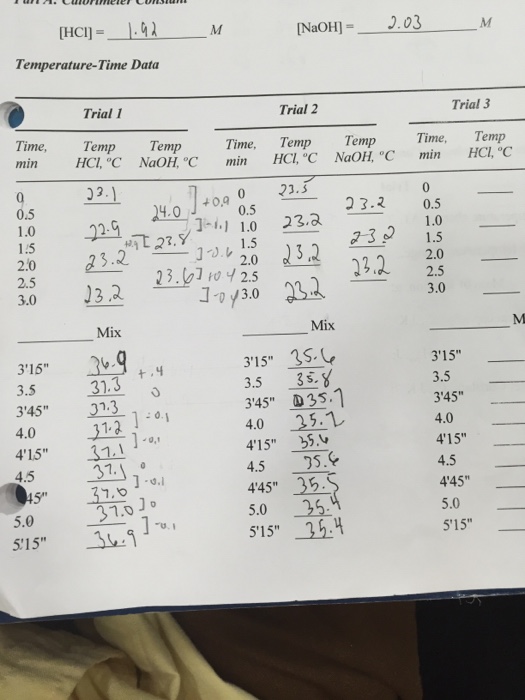 [HCl] = 1.92 M [NaOH] = 2.03 M
Temperature-Time Data
Trial 1 Trial 2 Trial 3
Time, Temp Temp Time, Temp Temp Time, Temp
min HCl, °C NaOH, °C min HCl, °C NaOH, °C min HCl, °C
0 23.1 0 23.5 0
0.5 24.0 +0.9 0.5 23.2 0.5
1.0 22.9 1.0 23.2 1.0
1.5 23.8 1.5 23.2 1.5
2.0 23.2 2.0 23.2 2.0
2.5 23.6 2.5 23.2 2.5
3.0 23.2 3.0 23.2 3.0
Mix Mix M
3'15" 36.9 3'15" 35.6 3'15"
3.5 37.3 +.4 3.5 35.8 3.5
3'45" 37.3 0 3'45" 35.7 3'45"
4.0 37.2 -0.1 4.0 35.7 4.0
4'15" 37.1 -0.1 4'15" 35.6 4'15"
4.5 37.1 0 4.5 35.6 4.5
45" 37.0 -0.1 4'45" 35.5 4'45"
5.0 37.0 0 5.0 35.4 5.0
5'15" 36.9 -0.1 5'15" 35.4 5'15"